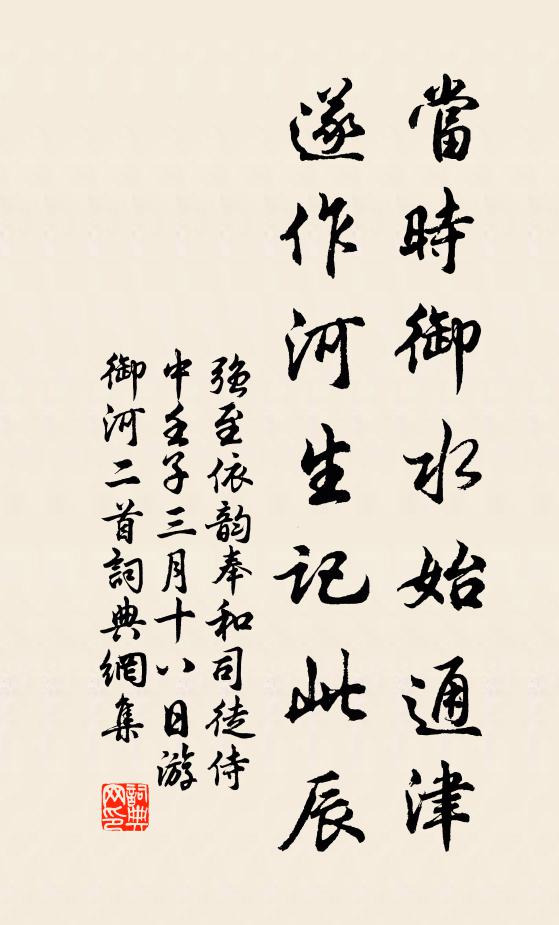 當時御水始通津
遂作河生記此辰
強至依韵奉和司徒侍
中壬子三月十八日游
御河二首詞典網集
詞典网印